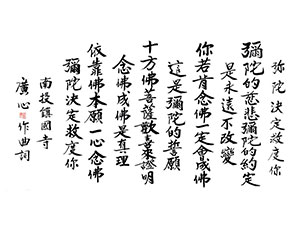 彌陀決定救度你
彌陀的慈悲彌陀的約定
是永遠不改變
你若肯念佛一定會成佛
這是彌陀的誓願
十方佛菩薩歡喜來證明
念佛成佛是真理
依靠佛本願一心念佛
彌陀決定救度你
南投鎮國寺
廣心作曲詞